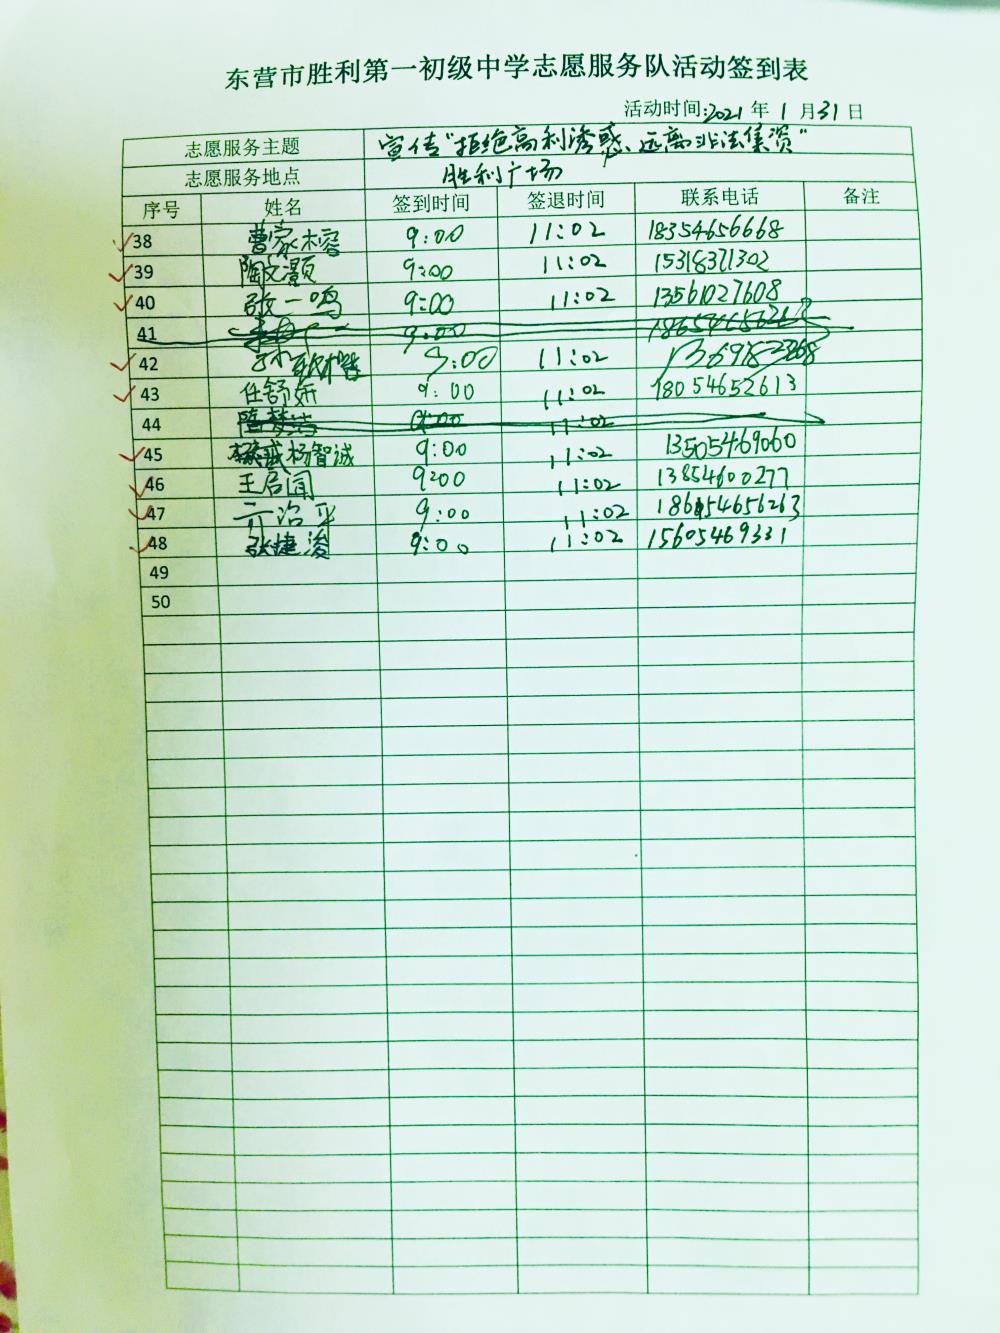 东营市胜利第一初级中学志愿服务队活动签到表
活动时间:2021年1月31日
志愿服务主题 宣传“拒绝高利诱惑、远离非法集资”
志愿服务地点 胜利广场
序号 姓名 签到时间 签退时间 联系电话 备注
38 曹家榕 9:00 11:02 18354656668
39 陶文灏 9:00 11:02 15318371302
40 张一鸣 9:00 11:02 13561027608
41 9:00
42 9:00 11:02
43 任舒妍 9:00 11:02 18054652613
44 9:00 11:02
45 杨智诚 9:00 11:02 13505469060
46 王启闻 9:00 11:02 13854600277
47 亓治平 9:00 11:02
48 张捷浚 9:00 11:02 15605469331
49
50